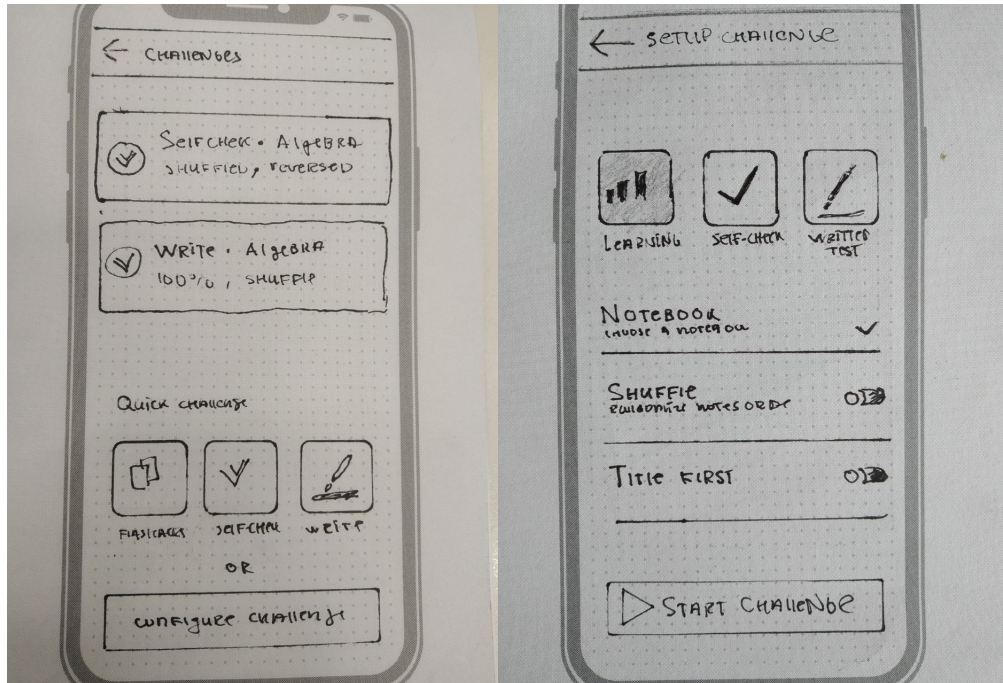 ← CHAllENGES
SelFCHeK · AlgeBRA
SHUFFlED, reveRSeD
WRite · AlgeBRA
100%, SHUFFle
Quick CHAllenge
FlASHCARDS
SelF-CHeck
WRite
OR
CONFigURe CHAllenge
← SeTUP CHAllENGE
LeARNiNG
SelF-CHeck
WRitteN
TeST
NOTeBOOK
CHOOSe A NOTeBOOK
SHUFFle
RANDOMize NOTeS ORDe
Title FiRST
START CHAlleNGe